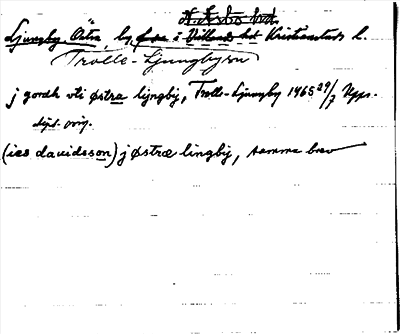 N. Åsbo hd.
Ljungby, Östra, by, i Villands hd Kristianstads l.
Trolle-Ljungby sn
j gordh vti østra liyngby, Trolle-Ljungby 1465 29/7 Upps.
dipl. orig.
(ies davidsson) j østræ lingby, samma brev